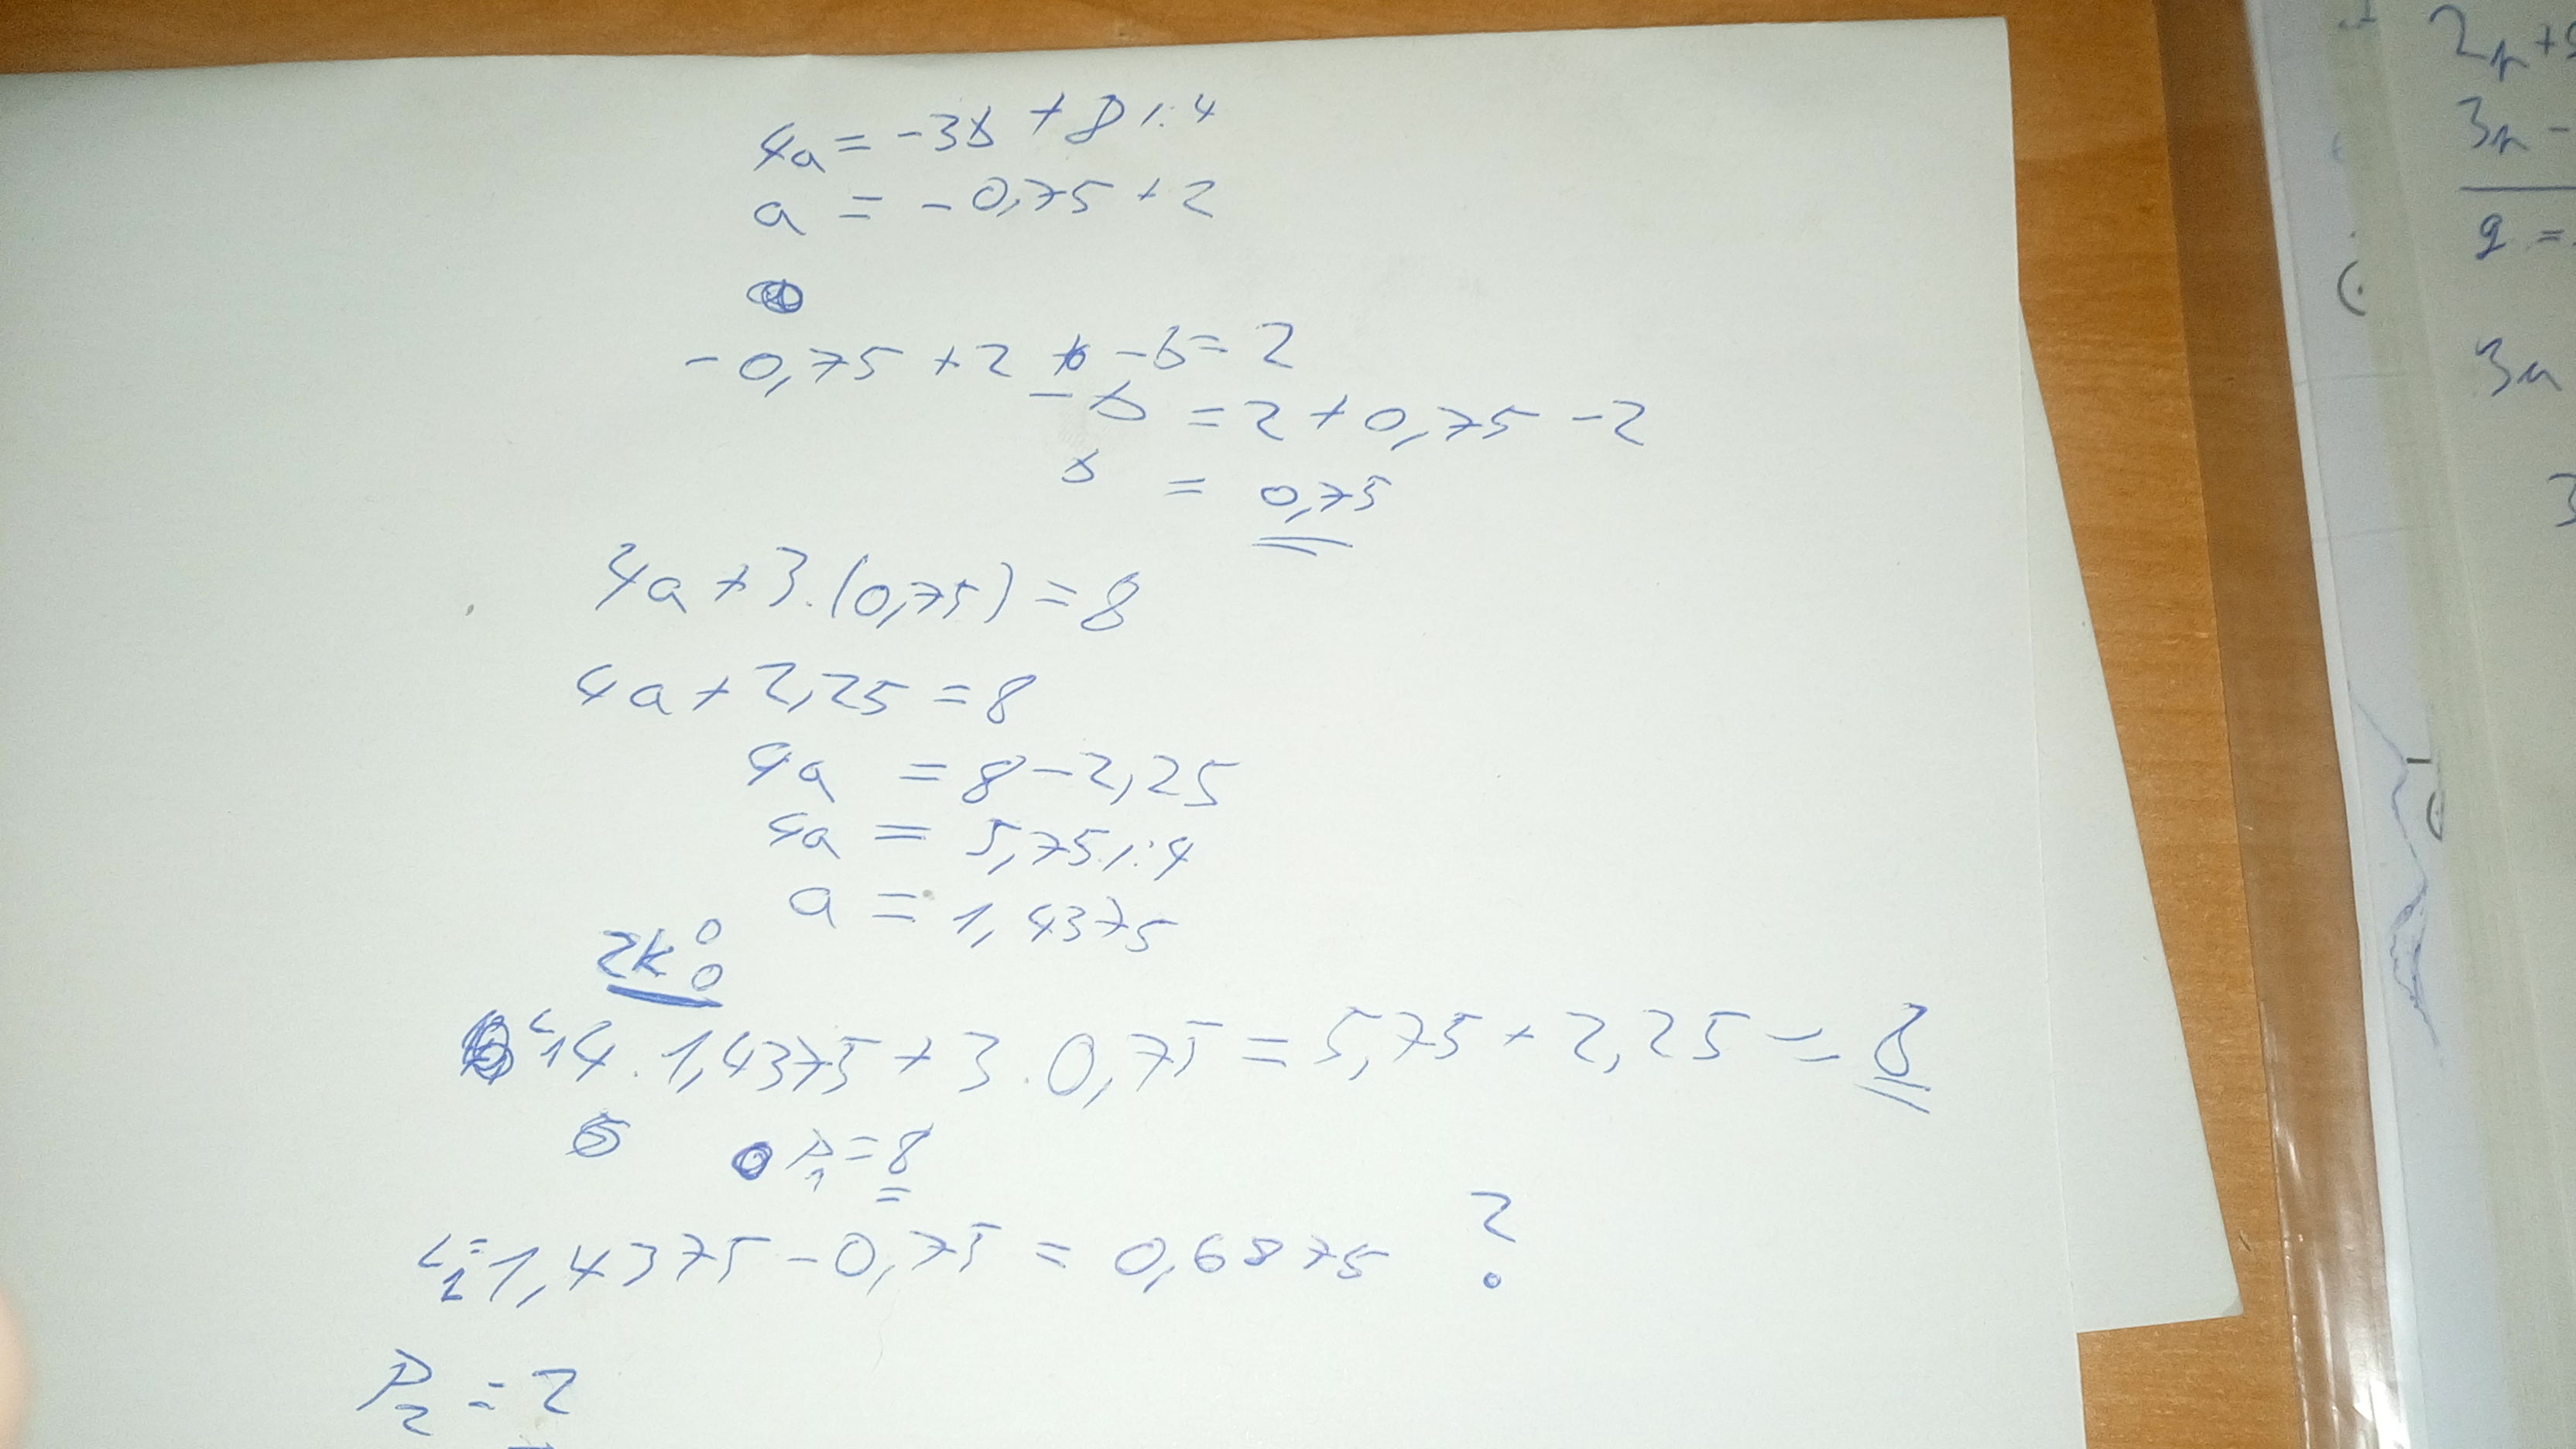 4a = -3b + 8 /:4
a = -0,75 + 2
-0,75 + 2 -b = 2
-b = 2 + 0,75 - 2
b = 0,75
4a + 3.(0,75) = 8
4a + 2,25 = 8
4a = 8 - 2,25
4a = 5,75 /:4
a = 1,4375
zk:
L1 4 . 1,4375 + 3 . 0,75 = 5,75 + 2,25 = 8
P1 = 8
L2 = 1,4375 - 0,75 = 0,6875 ?
P2 = 2
3n -
2 =
3n
3